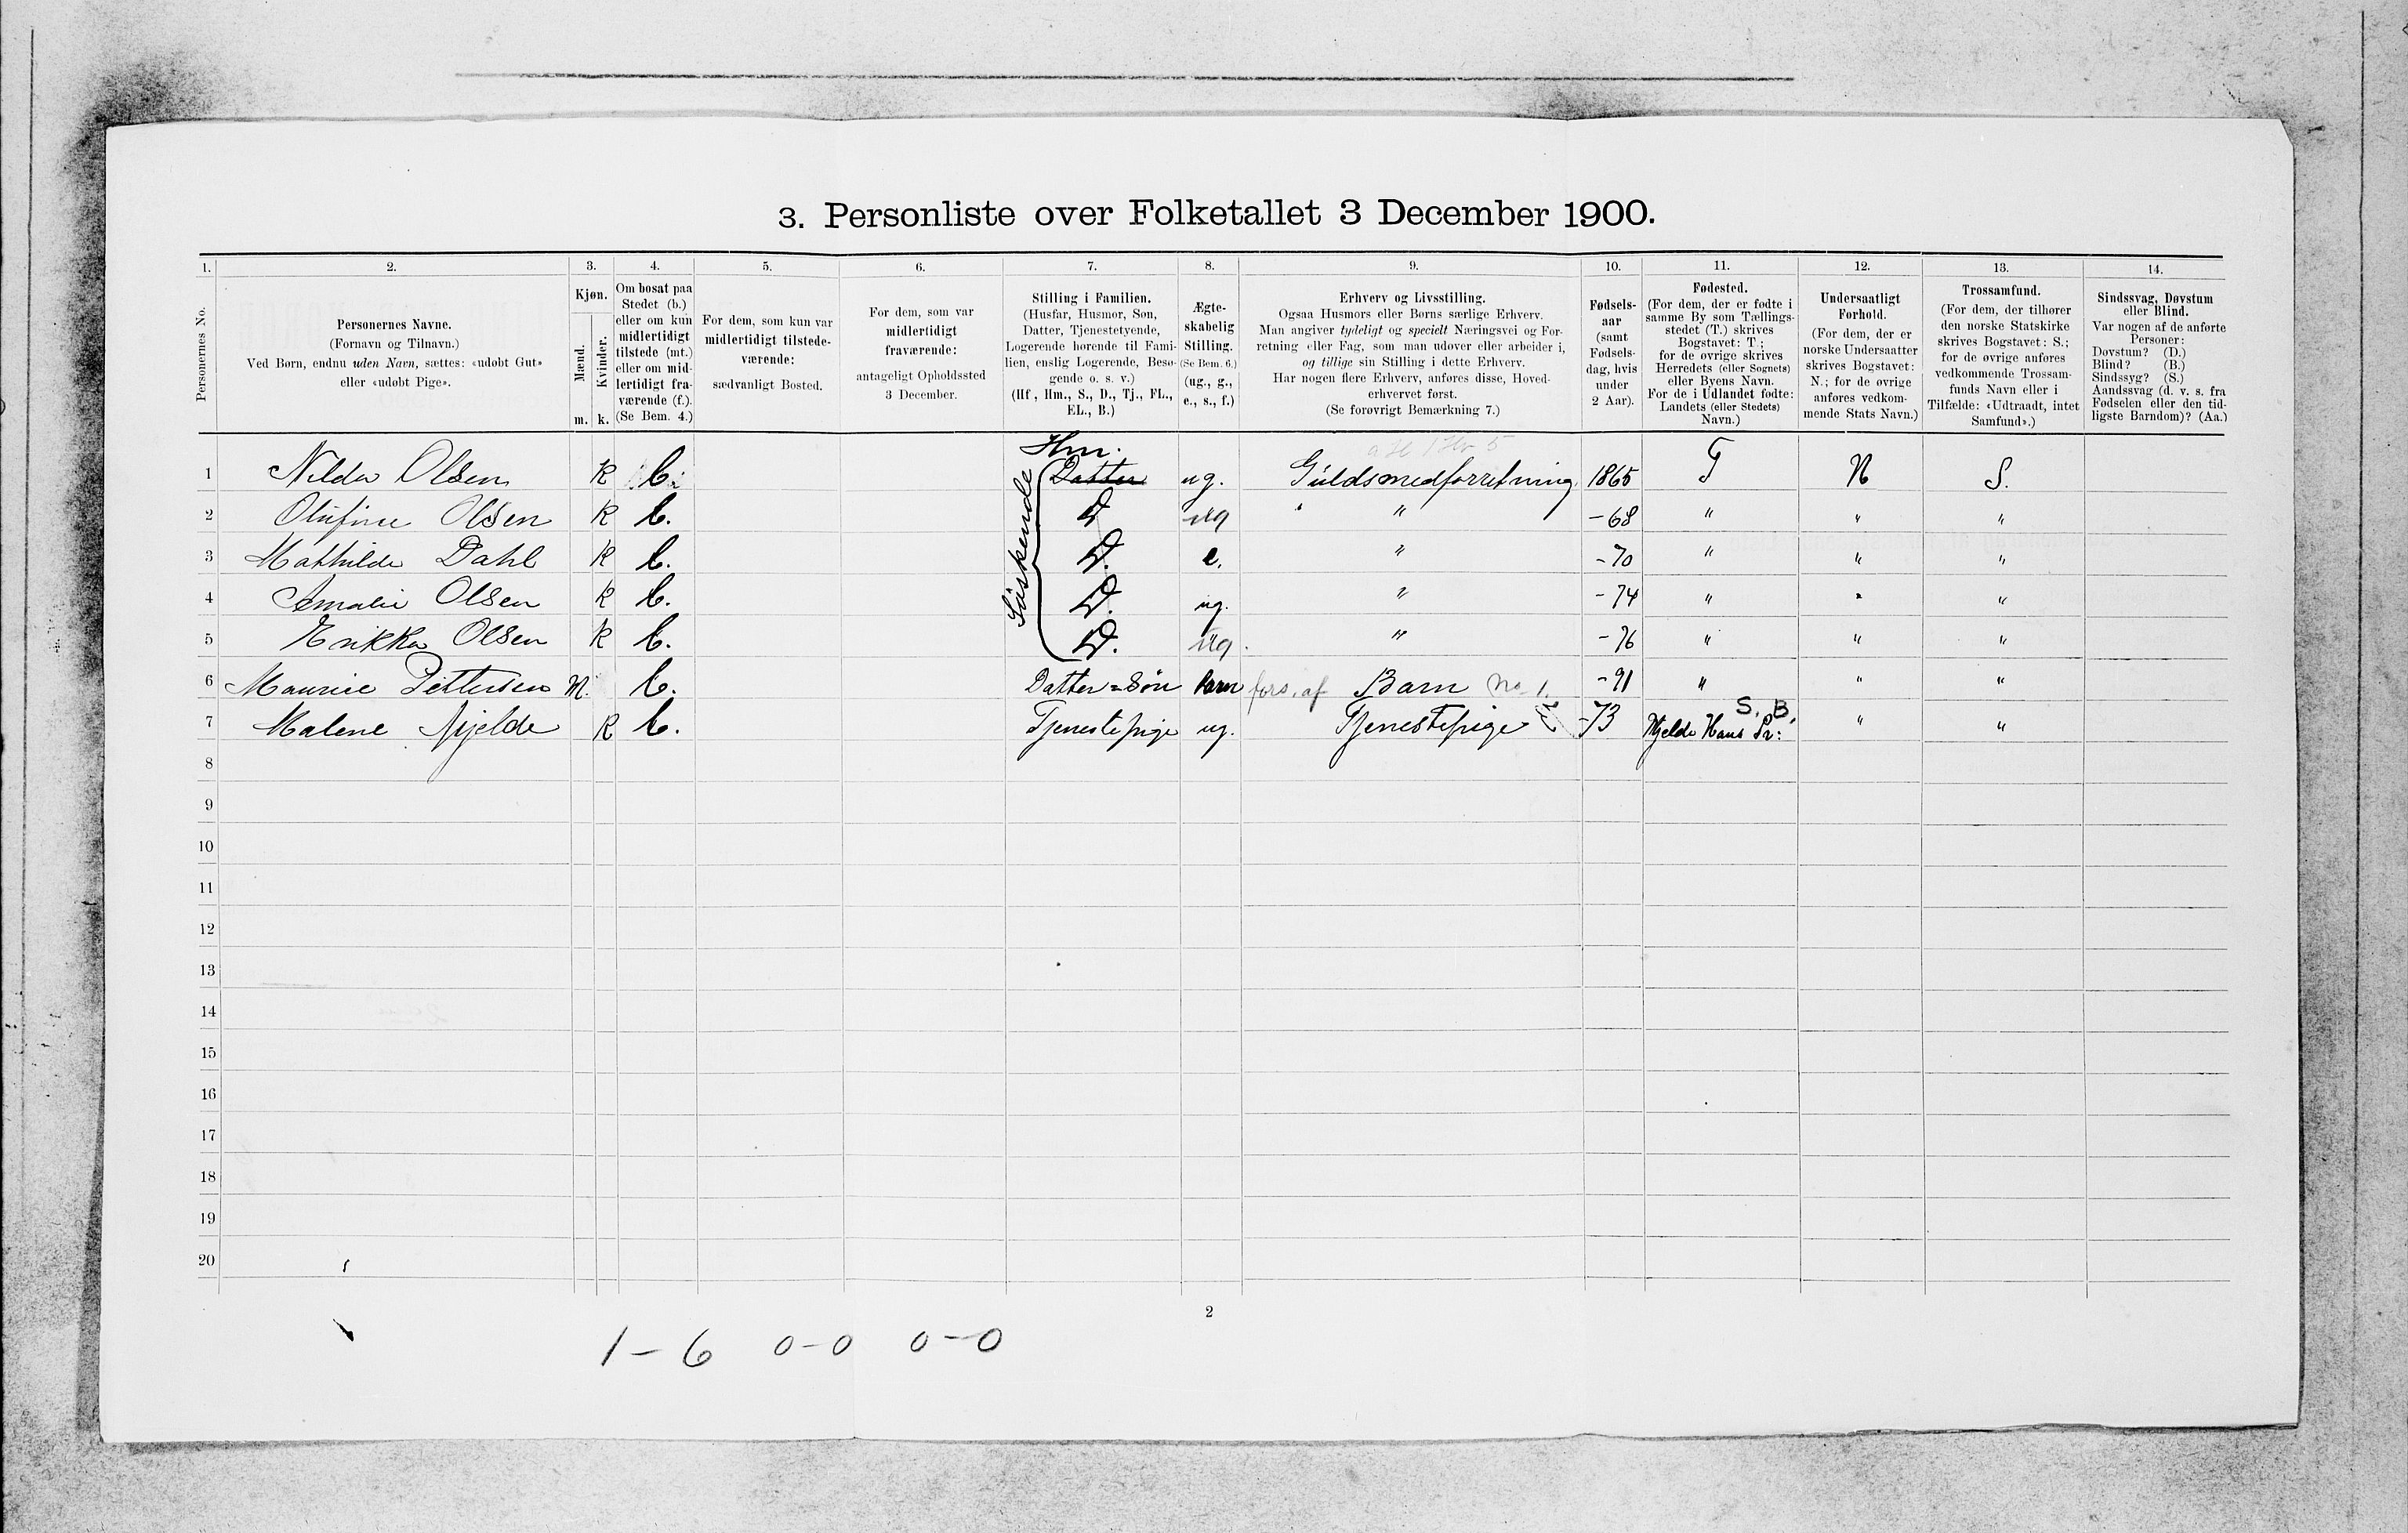 3. Personliste over Folketallet 3 December 1900.
1. 2. 3. 4. 5. 6. 7. 8. 9. 10. 11. 12. 13. 14.
Personernes No.
Personernes Navne.
(Fornavn og Tilnavn.)
Ved Børn, endnu uden Navn, sættes: «udøbt Gut»
eller «udøbt Pige».
Kjøn.
Mænd.
Kvinder.
m. k.
Om bosat paa
Stedet (b.)
eller om kun
midlertidigt
tilstede (mt.)
eller om mid-
lertidigt fra-
værende (f.).
(Se Bem. 4.)
For dem, som kun var
midlertidigt tilstede-
værende:
sædvanligt Bosted.
For dem, som var
midlertidigt
fraværende:
antageligt Opholdssted
3 December.
Stilling i Familien.
(Husfar, Husmor, Søn,
Datter, Tjenestetyende,
Logerende hørende til Fami-
lien, enslig Logerende, Besø-
gende o. s. v.)
(Hf, Hm., S., D., Tj., FL.,
EL., B.)
Ægte-
skabelig
Stilling.
(Se Bem. 6.)
(ug., g.,
e., s., f.)
Erhverv og Livsstilling.
Ogsaa Husmors eller Børns særlige Erhverv.
Man angiver tydeligt og specielt Næringsvei og For-
retning eller Fag, som man udøver eller arbeider i,
og tillige sin Stilling i dette Erhverv.
Har nogen flere Erhverv, anføres disse, Hoved-
erhvervet først.
(Se forøvrigt Bemærkning 7.)
Fødsels-
aar
(samt
Fødsels-
dag, hvis
under
2 Aar).
Fødested.
(For dem, der er fødte i
samme By som Tællings-
stedet (T.) skrives
Bogstavet: T.;
for de øvrige skrives
Herredets (eller Sognets)
eller Byens Navn.
For de i Udlandet fødte:
Landets (eller Stedets)
Navn.)
Undersaatligt
Forhold.
(For dem, der er
norske Undersaatter
skrives Bogstavet:
N.; for de øvrige
anføres vedkom-
mende Stats Navn.)
Trossamfund.
(For dem, der tilhører
den norske Statskirke
skrives Bogstavet: S.;
for de øvrige anføres
vedkommende Trossam-
funds Navn eller i
Tilfælde: «Udtraadt, intet
Samfund».)
Sindssvag, Døvstum
eller Blind.
Var nogen af de anførte
Personer:
Døvstum? (D.)
Blind? (B.)
Sindssyg? (S.)
Aandssvag (d. v. s. fra
Fødselen eller den tid-
ligste Barndom)? (Aa.)
Hm.
1 Nilda Olsen K b. Datter ug. Guldsmedforretning 1865 T N S.
Søskende
2 Olufine Olsen K b. D ug " -68 " " "
3 Mathilde Dahl K b. D. e. " -70 " " "
4 Amalie Olsen K b. D. ug. " -74 " " "
5 Erikka Olsen K b. D. ug. " -76 " " "
6 Maurice Pettersen M. b. Datter=Søn Barn fors. af Barn No 1. -91 " " "
S. B.
7 Malene Mjelde K b. Tjenestepige ug. Tjenestepige -73 Mjelde Haus Pr: " "
8
9
10
11
12
13
14
15
16
17
18
19
20
2
1-6 0-0 0-0